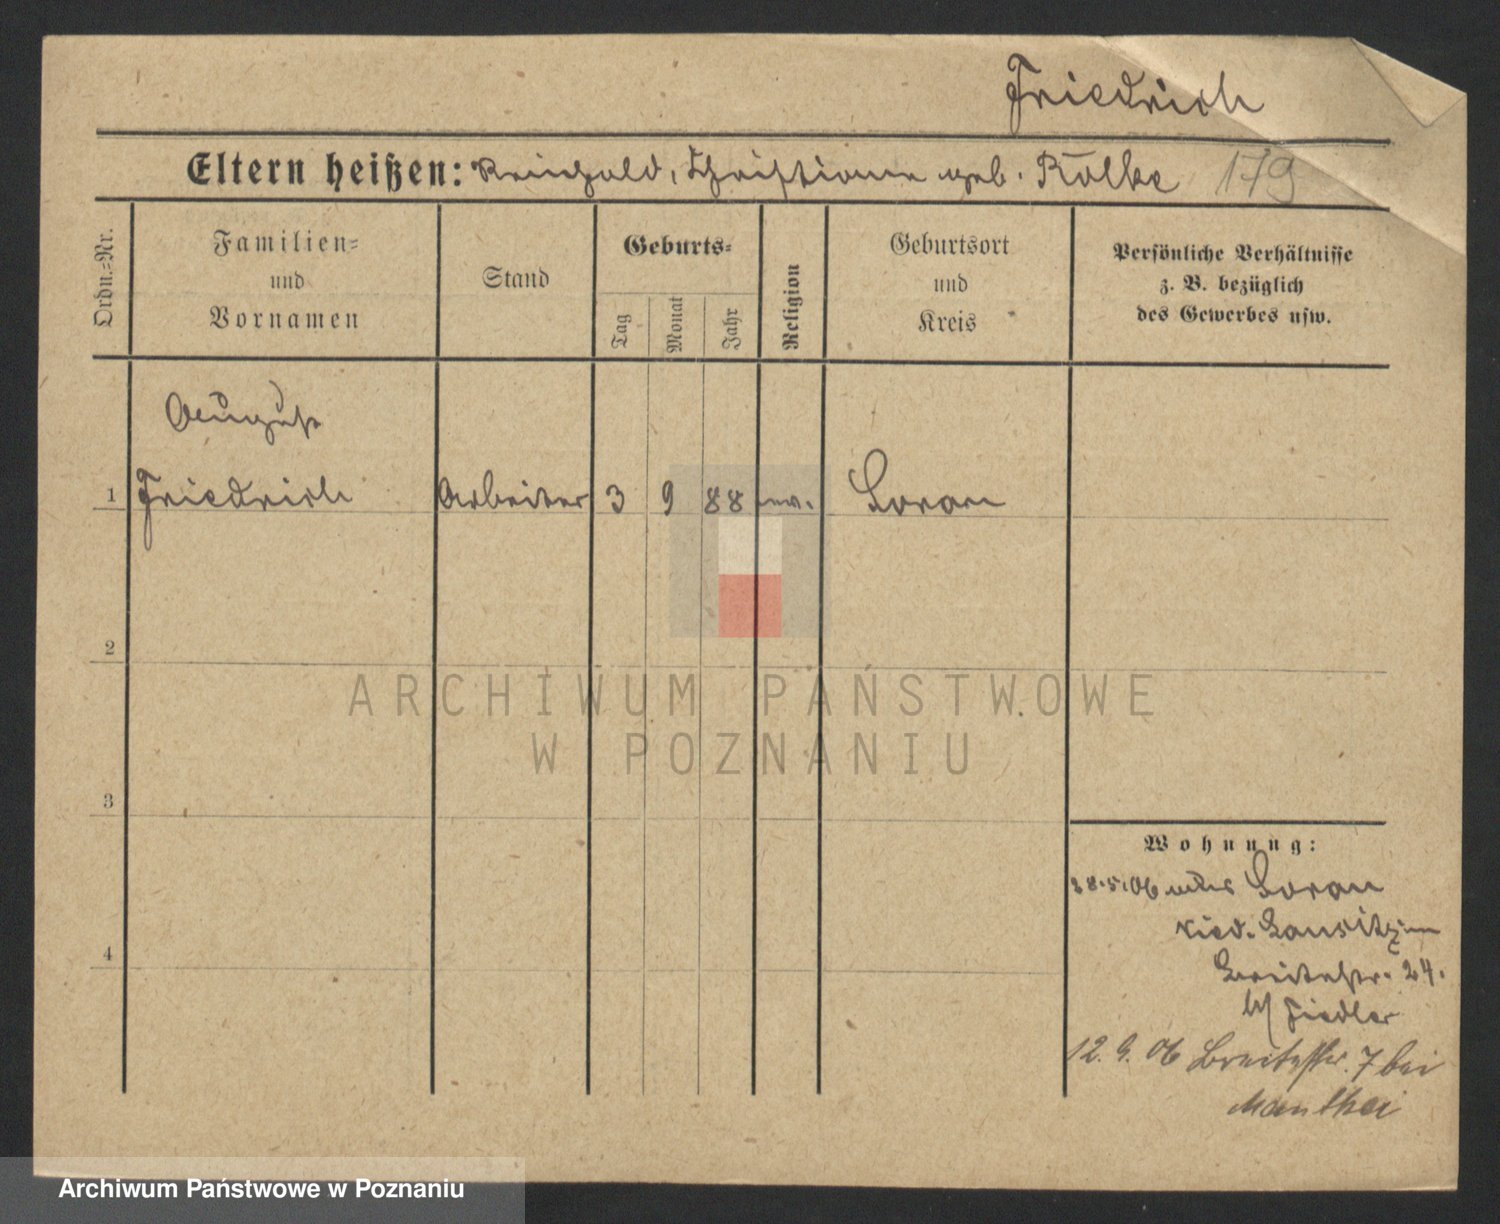 Friedrich
Eltern heißen: Reinhold, Christiane geb. Rölke 179
Ordn.=Nr.
Familien=
und
Vornamen
Stand
Geburts=
Tag
Monat
Jahr
Religion
Geburtsort
und
Kreis
Persönliche Verhältnisse
z. B. bezüglich
des Gewerbes usw.
August
1 Friedrich Arbeiter 3 9 88 ev. Soran
2
ARCHIWUM PAŃSTWOWE
W POZNANIU
3
Wohnung:
28.5.06 Soran
Nied. Lausitz
Breitestr. 24.
b/ Fiedler
4
12.9.06 Breitestr. 7 bei
Manthei
Archiwum Państwowe w Poznaniu